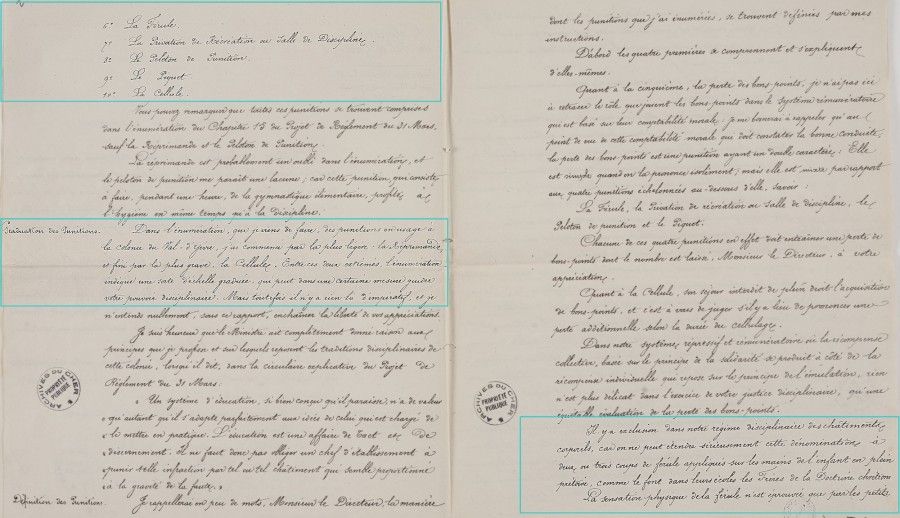 6º La Férule.
7º La Privation de Récréation ou Salle de Discipline.
8º Le Peloton de Punition.
9º Le Piquet
10º La Cellule.
Vous pouvez remarquer que toutes ces punitions se trouvent comprises
dans l'énumération du Chapitre 13 du Projet de Règlement du 31 Mars,
sauf la Réprimande et le Peloton de Punition.
La réprimande est probablement un oubli dans l'énumération, et
le peloton de punition me paraît une lacune; car cette punition, qui consiste
à faire, pendant une heure, de la gymnastique élémentaire, profite à
l'hygiène en même temps qu'à la discipline.
Graduation des Punitions.
Dans l'énumération, que je viens de faire, des punitions en usage à
la colonie du Val-d'Yèvre, j'ai commencé par la plus légère: la Réprimande
et fini par la plus grave, la Cellule. Entre ces deux extrêmes, l'énumération
indique une sorte d'échelle graduée, qui peut dans une certaine mesure guider
votre pouvoir disciplinaire. Mais toutefois il n'y a rien là d'impératif, et je
n'entends nullement, sous ce rapport, enchaîner la liberté de vos appréciations.
Je suis heureux que le Ministre ait complètement donné raison aux
principes que je professe et sur lesquels reposent les traditions disciplinaires de
cette colonie, lorsqu'il dit, dans la circulaire explicative du Projet de
Règlement du 31 Mars:
« Un système d'éducation, si bien conçu qu'il paraisse, n'a de valeur
« qu'autant qu'il s'adapte parfaitement aux idées de celui qui est chargé de
« le mettre en pratique. L'éducation est une affaire de tact et de
« discernement. Il ne faut donc pas obliger un chef d'établissement à
« punir telle infraction par tel ou tel châtiment qui semble proportionné
« à la gravité de la faute. »
Définition des Punitions.
Je rappellerai en peu de mots, Monsieur le Directeur, la manière
ARCHIVES DU CHER
PROPRIÉTÉ
PUBLIQUE
dont les punitions que j'ai énumérées, se trouvent définies par mes
instructions.
D'abord les quatre premières se comprennent et s'expliquent
d'elles-mêmes.
Quant à la cinquième, la perte des bons-points, je n'ai pas ici
à retracer le rôle que jouent les bons-points dans le système rémunératoire
qui est basé sur leur comptabilité morale; je me bornerai à rappeler qu'au
point de vue de cette comptabilité morale qui doit constater la bonne conduite,
la perte des bons-points est une punition ayant un double caractère: Elle
est simple quand on la prononce isolément; mais elle est mixte par rapport
aux quatre punitions échelonnées au-dessous d'elle, savoir:
La Férule, la Privation de récréation ou salle de discipline, le
Peloton de punition et le Piquet.
Chacune de ces quatre punitions en effet doit entraîner une perte de
bons-points dont le nombre est laissé, Monsieur le Directeur, à votre
appréciation.
Quant à la Cellule, son séjour interdit de plein droit l'acquisition
de bons-points, et c'est à vous de juger s'il y a lieu de prononcer une
perte additionnelle selon la durée du cellulage.
Dans notre système, répressif et rémunératoire où la récompense
collective, basée sur le principe de la solidarité se produit à côté de la
récompense individuelle qui repose sur le principe de l'émulation, rien
n'est plus délicat dans l'exercice de votre justice disciplinaire, qu'une
équitable évaluation de la perte des bons-points.
Il y a exclusion dans notre régime disciplinaire des châtiments
corporels, car on ne peut étendre sérieusement cette dénomination à
deux ou trois coups de férule appliqués sur les mains de l'enfant en plein
prétoire, comme le font dans leurs écoles les Frères de la Doctrine chrétienne
La sensation physique de la férule n'est éprouvée que par les petits
ARCHIVES DU CHER
PROPRIÉTÉ
PUBLIQUE